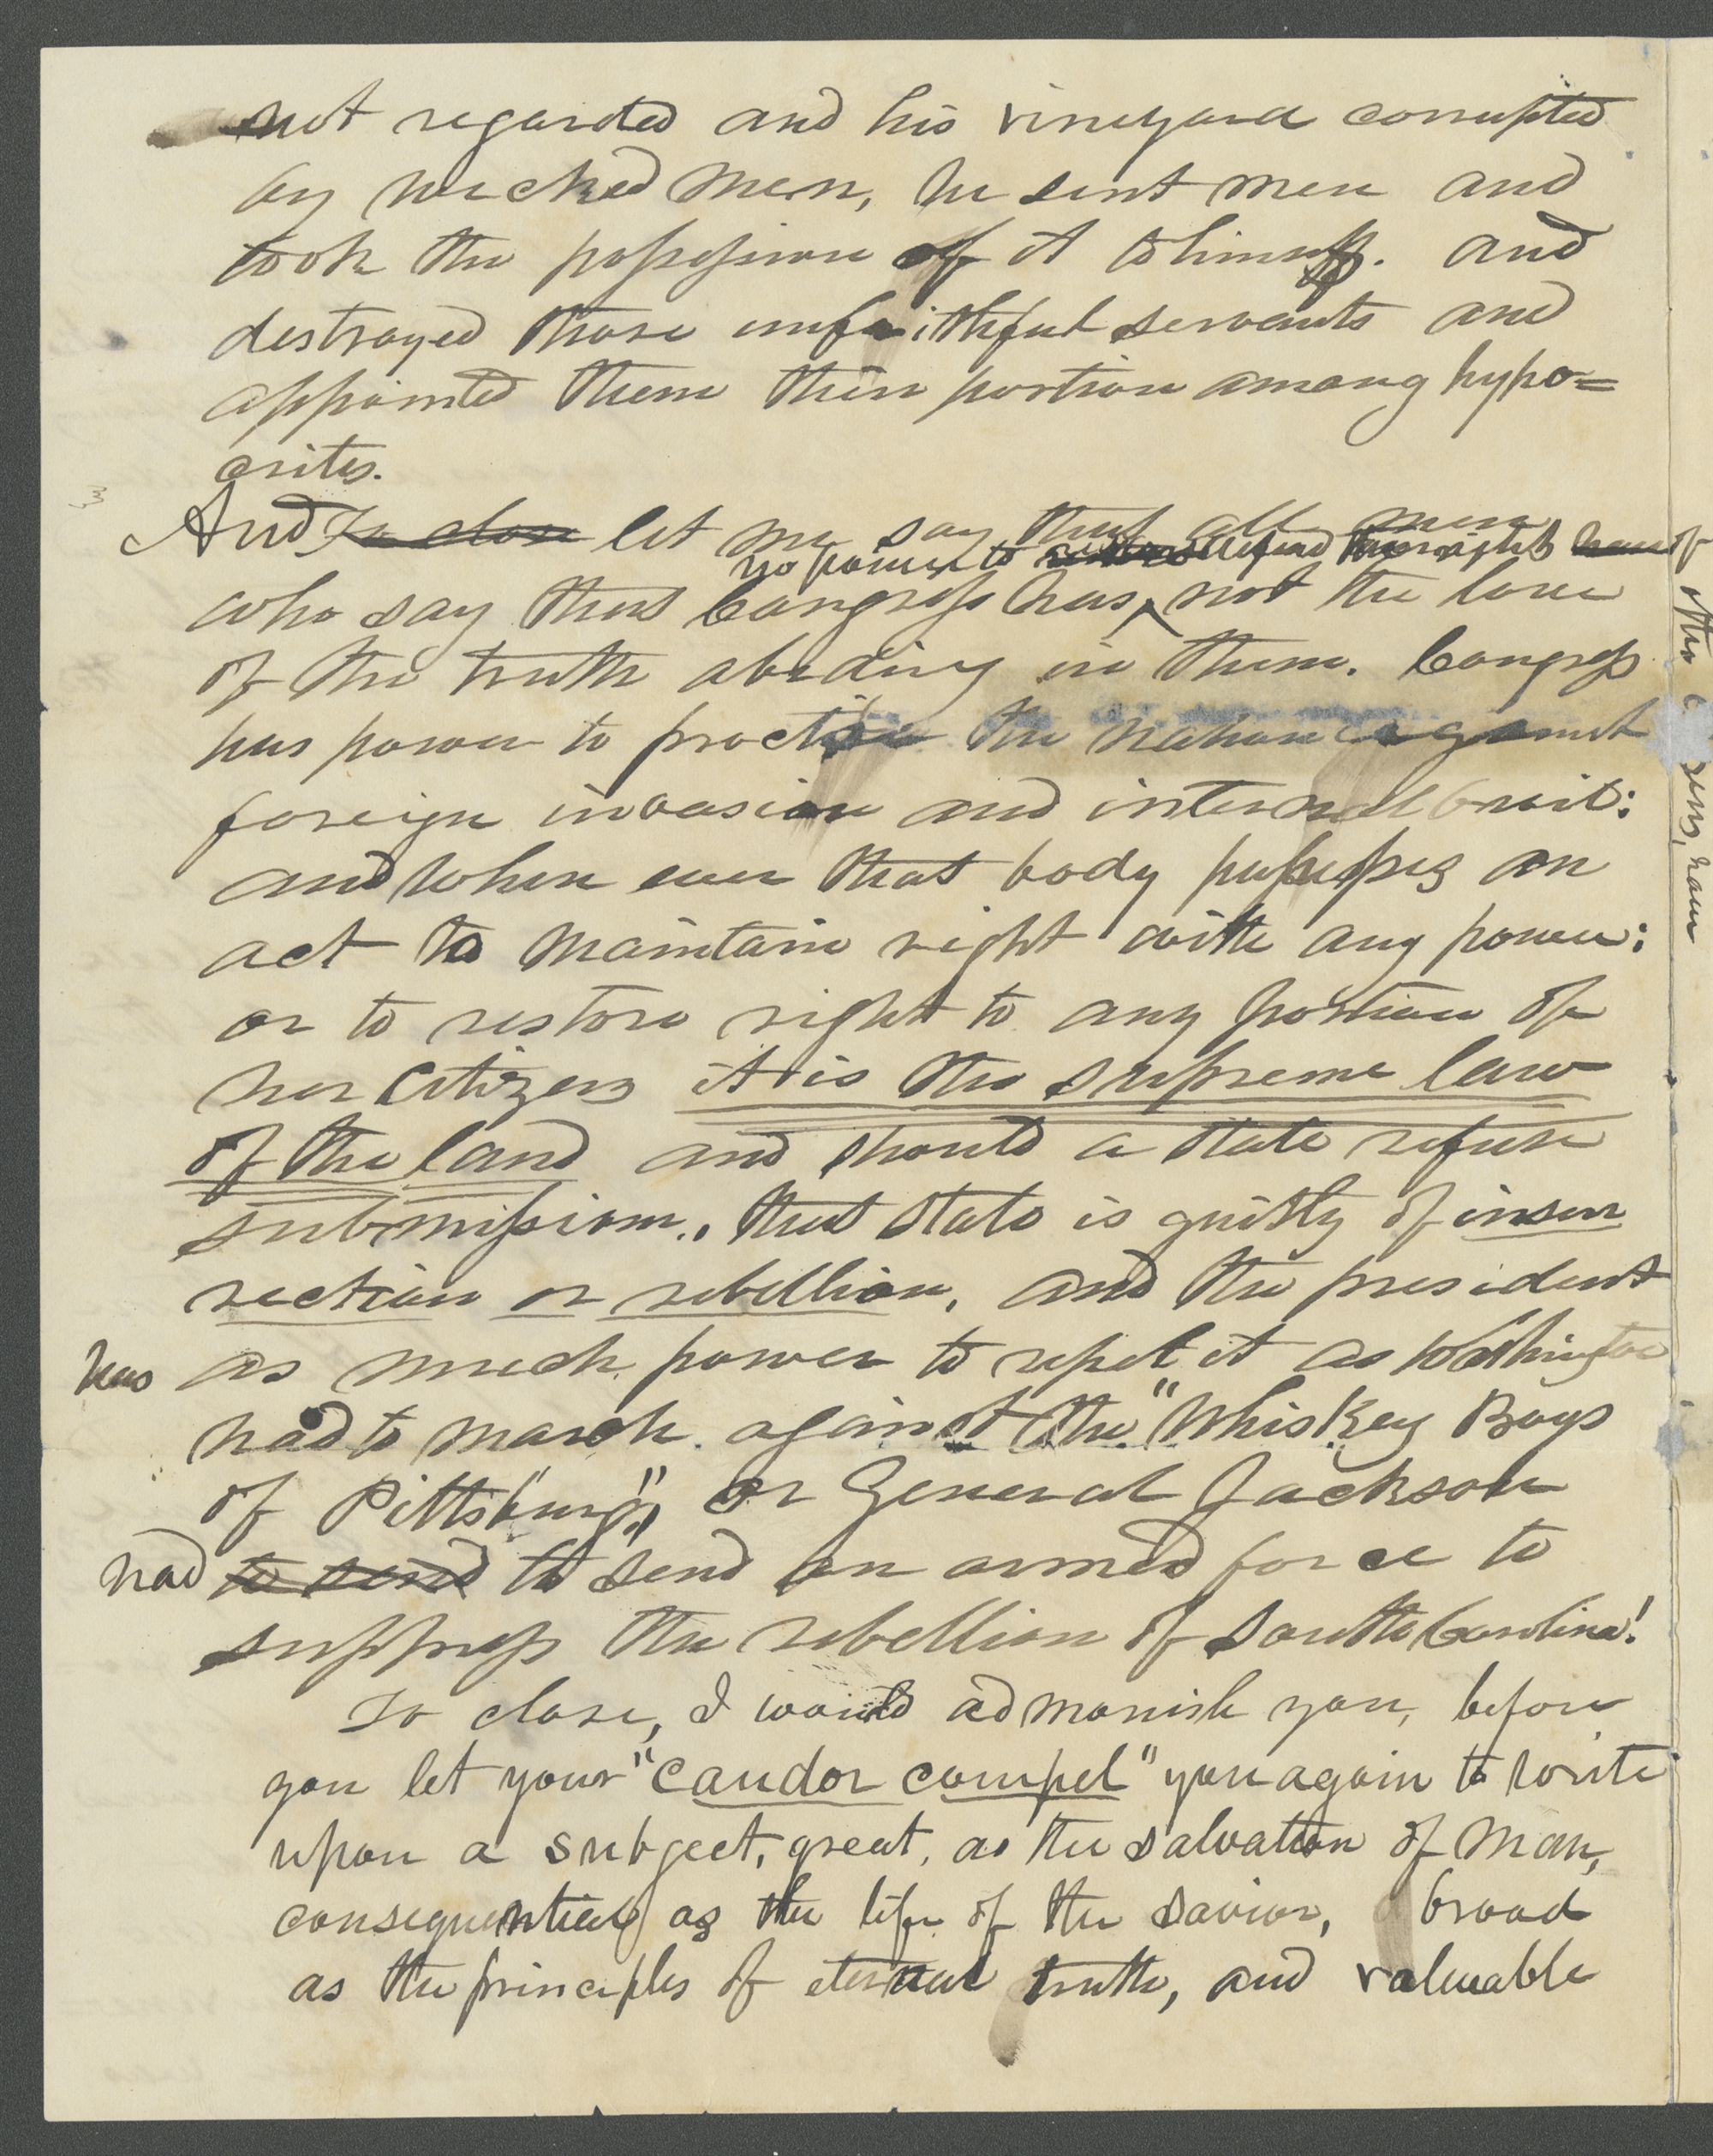 not regarded and his vineyard corrupted
by wicked men, he sent men and
took the possession of it to himself. and
destroyed those unfaithful servants and
appointed them their portion among hypo=
crites.
And In close let me say that all men
no power to defend the rights have of
who say that Congress has not the love
of the truth abiding in them. Congress
has power to protect the nation against
foreign invasion and internal broil:
and when ever that body passes an
act to maintain right with any power:
or to restore right to any portion of
her citizens it is the supreme law
of the land and should a state refuse
submission., that state is guilty of insur
rection or rebellion, and the president
has as much power to repel it as Washington
had to march against the "Whiskey Boys
of Pittsburg," or General Jackson
had to send to send an armed force to
suppress the rebellion of South Carolina!
To close, I would admonish you, before
you let your "candor compel" you again to write
upon a subject, great, as the salvation of man,
consequential as the life of the savior, broad
as the principles of eternal truth, and valuable
her citizens, have